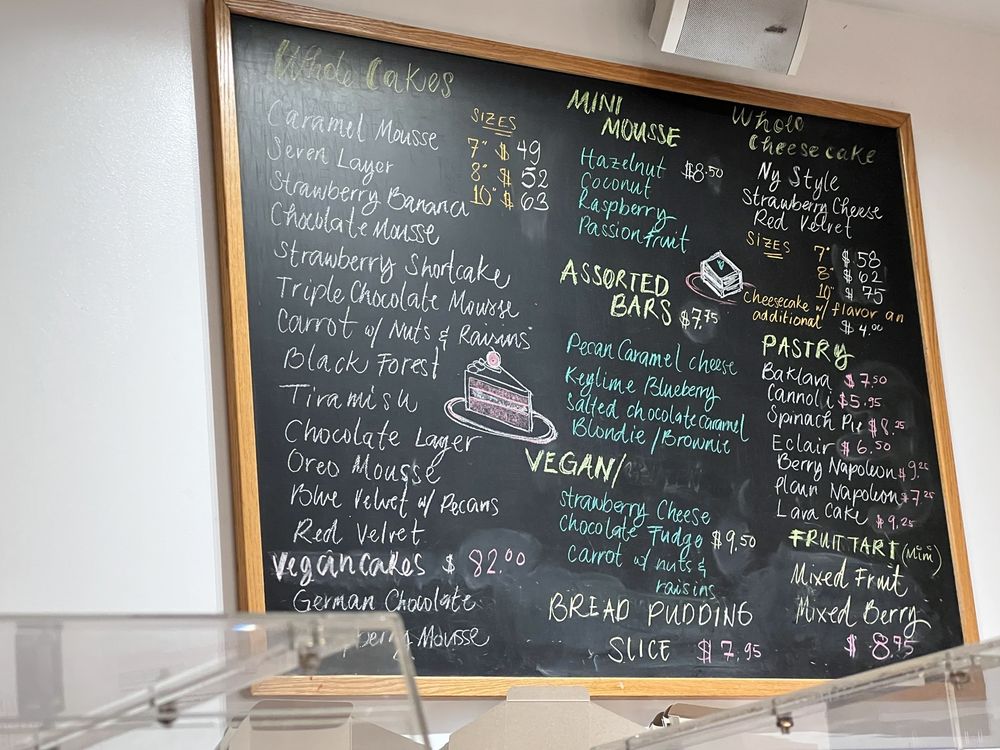 Whole Cakes
Caramel Mousse
Seven Layer
Strawberry Banana
Chocolate Mousse
Strawberry Shortcake
Triple Chocolate Mousse
Carrot w/ Nuts & Raisins
Black Forest
Tiramisu
Chocolate Layer
Oreo Mousse
Blue Velvet w/ Pecans
Red Velvet
Vegan Cakes $ 82.00
German Chocolate
Mousse
SIZES
7" $ 49
8" $ 52
10" $ 63
MINI
MOUSSE
Hazelnut $8.50
Coconut
Raspberry
Passionfruit
ASSORTED
BARS $7.75
Pecan Caramel cheese
Keylime Blueberry
Salted chocolate caramel
Blondie / Brownie
VEGAN/
Strawberry Cheese
Chocolate Fudge $9.50
Carrot w/ nuts &
raisins
BREAD PUDDING
SLICE $7.95
Whole
Cheesecake
Ny Style
Strawberry Cheese
Red Velvet
SIZES 7" $ 58
8" $ 62
10" $ 75
Cheesecake w/ flavor an
additional $4.00
PASTRY
Baklava $7.50
Cannoli $5.95
Spinach Pie $8.25
Eclair $6.50
Berry Napoleon $9.25
Plain Napoleon $7.25
Lava Cake $9.25
FRUIT TART (Mini)
Mixed Fruit
Mixed Berry
$ 8.95